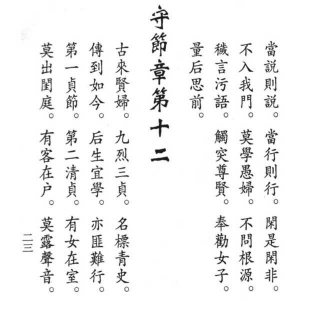 當説則説。當行則行。閑是閑非。
不入我門。莫學愚婦。不問根源。
穢言污語。觸突尊賢。奉勸女子。
量后思前。
守節章第十二
古來賢婦。九烈三貞。名標青史。
傳到如今。后生宜學。亦匪難行。
第一貞節。第二清貞。有女在室。
莫出閨庭。有客在户。莫露聲音。
二三